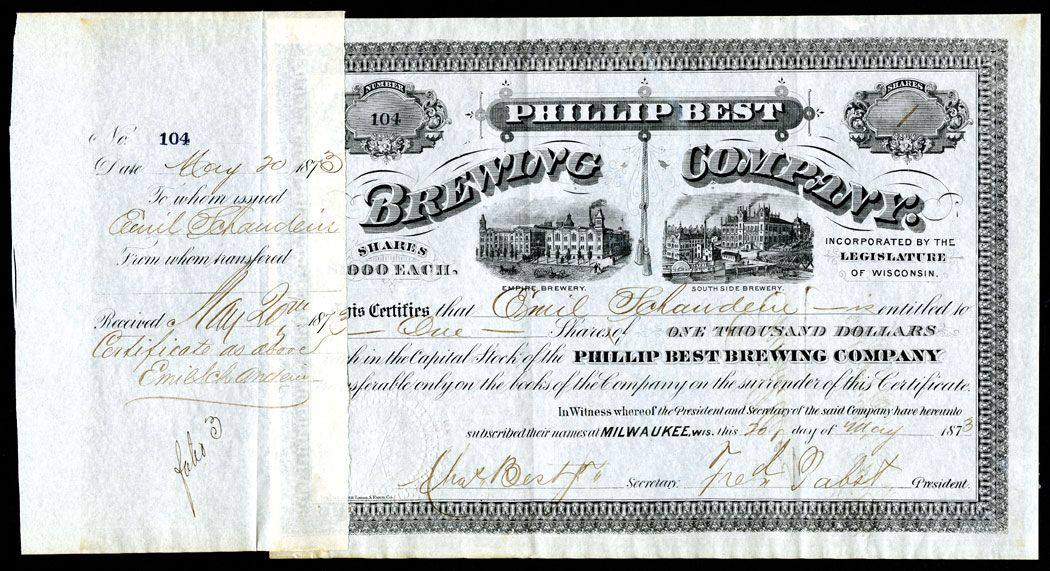 No. 104
Date May 20 1873
To whom issued
Emil Schandein
From whom transferred
Received May 20th 1873
Certificate as above
Emil Schandein
folio 3
NUMBER
104
PHILLIP BEST
SHARES
1
BREWING COMPANY.
SHARES
$1000 EACH.
EMPIRE BREWERY.
SOUTH SIDE BREWERY.
INCORPORATED BY THE
LEGISLATURE
OF WISCONSIN.
is Certifies that Emil Schandein is entitled to
One Shares of ONE THOUSAND DOLLARS
ch in the Capital Stock of the PHILLIP BEST BREWING COMPANY
sferable only on the books of the Company on the surrender of this Certificate.
In Witness whereof the President and Secretary of the said Company have hereunto
subscribed their names at MILWAUKEE, WIS. this 20 day of May 1873
Chas Best Jr Secretary. Fred Pabst President.